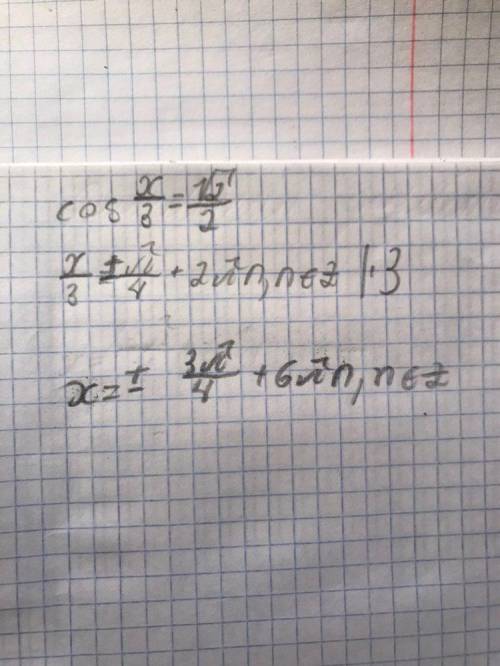 cos x/3 = √2/2
x/3 = ± π/4 + 2πn, n∈Z |·3
x = ± 3π/4 + 6πn, n∈Z